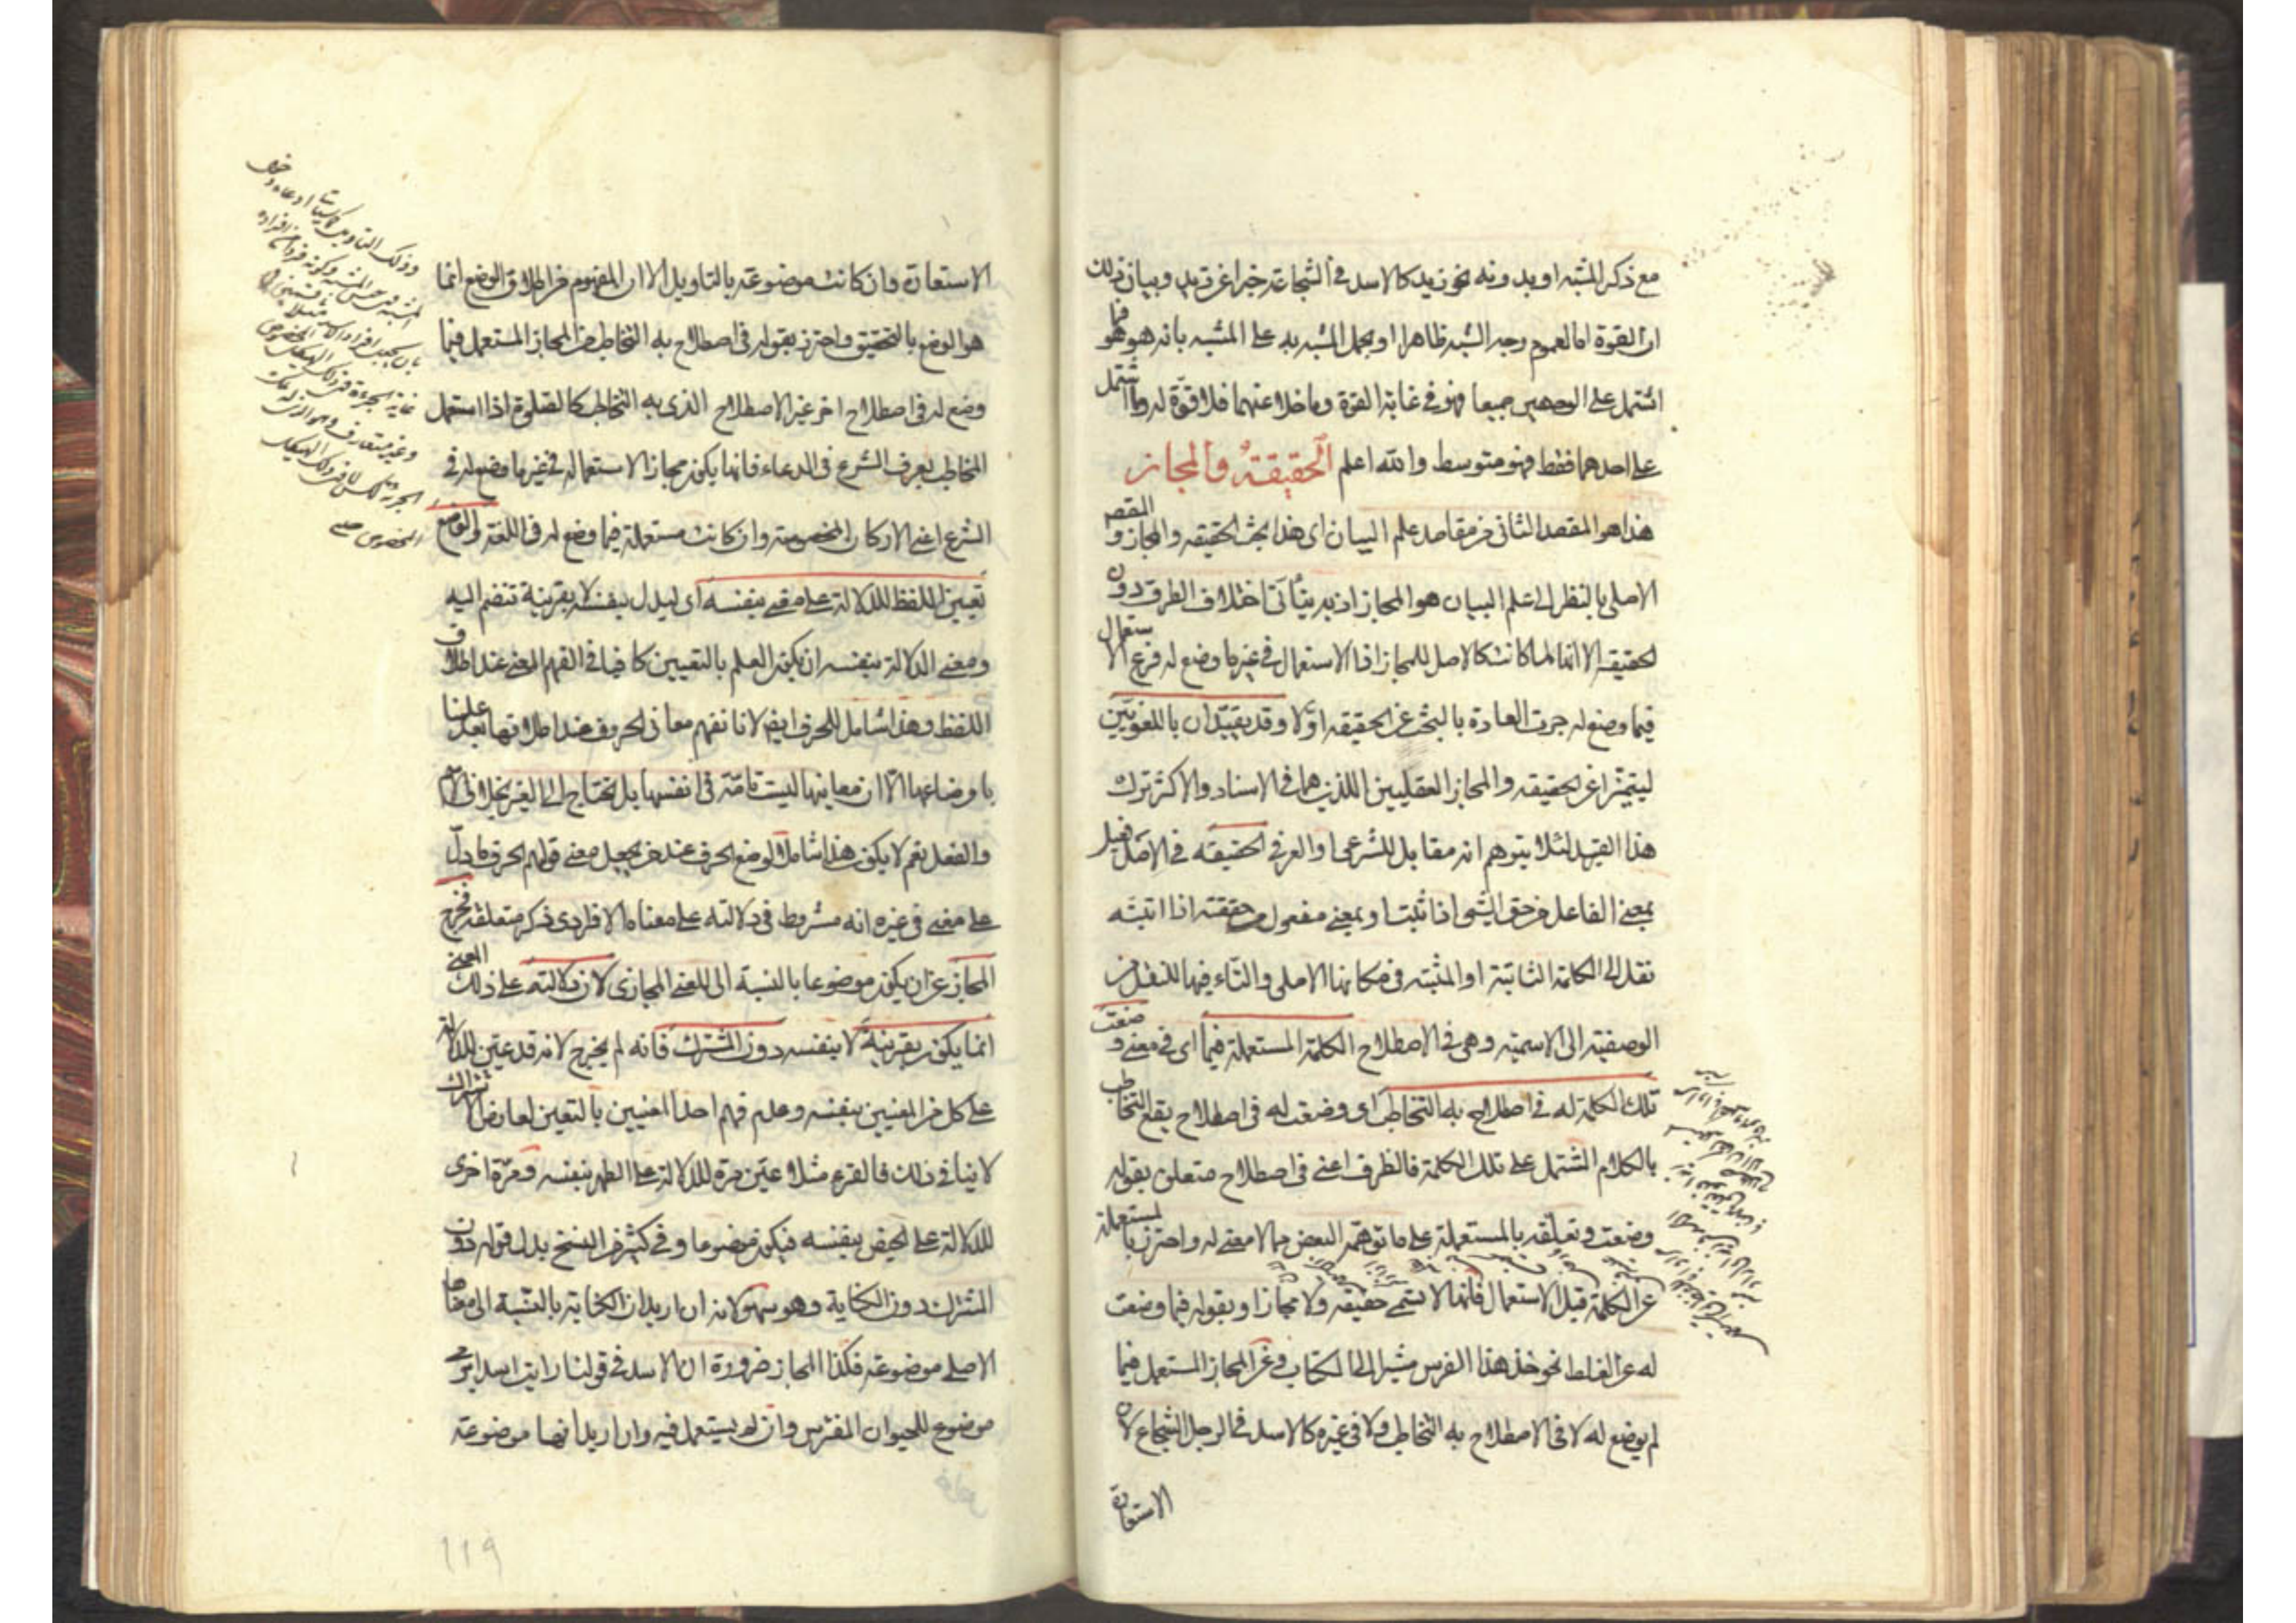 مع ذكر المشبه او بدونه نحو زيد كالاسد في الشجاعة خبرا عن زيد وبيان ذلك
ان القوة اما لعموم وجه الشبه ظاهرا او بحمل المشبه به على المشبه بانه هو هو فما
اشتمل على الوجهين جميعا فهو في غاية القوة وما خلا عنهما فلا قوة له وما اشتمل
على احدهما فقط فهو متوسط والله اعلم الحقيقة والمجاز
هذا هو المقصد الثاني من مقاصد علم البيان اى هذا بحث الحقيقه والمجاز و المقصد
الاصلى بالنظر الى علم البيان هو المجاز اذ به يتأتى اختلاف الطرق دون
الحقيقه الا انها لما كانت كالاصل للمجاز اذ الاستعمال في غير ما وضع له فرع الاستعمال
فيما وضع له جرت العادة بالبحث عن الحقيقه اولا وقد يقيدان باللغويين
ليتميزا عن الحقيقه والمجاز العقليين اللذين هما في الاسناد والاكثر ترك
هذا القيد لئلا يتوهم انه مقابل للشرعى او العرفي الحقيقه في الاصل فعيل
بمعنى الفاعل من حق الشئ اذا ثبت او بمعنى مفعول من حققته اذا اثبته
نقل الى الكلمة الثابتة او المثبتة في مكانها الاصلى والتاء فيها للنقل من
الوصفية الى الاسمية وهى في الاصطلاح الكلمة المستعملة فيما اى في معنى وضعت
تلك الكلمة له في اصطلاح به التخاطب اى وضعت له في اصطلاح يقع التخاطب
بالكلام المشتمل على تلك الكلمة فالظرف اعنى في اصطلاح متعلق بقوله
وضعت وتعلقه بالمستعملة على ما توهمه البعض مما لا معنى له واحترز بالمستعملة
عن الكلمة قبل الاستعمال فانها لا تسمى حقيقه ولا مجازا وبقوله فيما وضعت
له عن الغلط نحو خذ هذا الفرس مشيرا الى الكتاب وعن المجاز المستعمل فيما
لم يوضع له لا في الاصطلاح به التخاطب ولا في غيره كالاسد في الرجل الشجاع لان
الاستعارة
الاستعارة وان كانت موضوعة بالتاويل الا ان المفهوم من اطلاق الوضع انما
هو الوضع بالتحقيق واحترز بقوله في اصطلاح به التخاطب من المجاز المستعمل فيما
وضع له في اصطلاح اخر غير الاصطلاح الذى به التخاطب كالصلوة اذا استعمل
المخاطب بعرف الشرع في الدعاء فانها يكون مجازا لاستعماله في غير ما وضع له في
الشرع اعنى الاركان المخصوصة وان كانت مستعملة فيما وضع له في اللغة والوضع
تعيين اللفظ للدلالة على معنى بنفسه اى ليدل بنفسه لا بقرينة تنضم اليه
ومعنى الدلالة بنفسه ان يكون العلم بالتعيين كافيا في الفهم المعنى عند اطلاق
اللفظ وهذا شامل للحرف ايضا لانا نفهم معانى الحروف عند اطلاقها بعد علمنا
باوضاعها الا ان معانيها ليست تامة في انفسها بل تحتاج الى الغير بخلاف الاسم
والفعل نعم لا يكون هذا شاملا لوضع الحرف عند من يجعل معنى قولهم الحرف ما دل
على معنى في غيره انه مشروط في دلالته على معناه الافرادى ذكر متعلقه فخرج
المجاز عن ان يكون موضوعا بالنسبة الى المعنى المجازى لان دلالته على ذلك المعنى
انما يكون بقرينة لا بنفسه دون المشترك فانه لم يخرج لانه قد عين للدلالة
على كل من المعنيين بنفسه وعدم فهم احد المعنيين بالتعيين لعارض الاشتراك
لا ينافي ذلك فالقرء مثلا عين مرة للدلالة على الطهر بنفسه ومرة اخرى
للدلالة على الحيض بنفسه فيكون موضوعا وفي كثير من النسخ بدل قوله دون
المشترك دون الكناية وهو سهو لانه ان اريد ان الكناية بالنسبة الى معناها
الاصلى موضوعة فكذا المجاز ضرورة ان الاسد في قولنا رايت اسدا يرمى
موضوع للحيوان المفترس وان لم يستعمل فيه وان اريد انها موضوعة
119